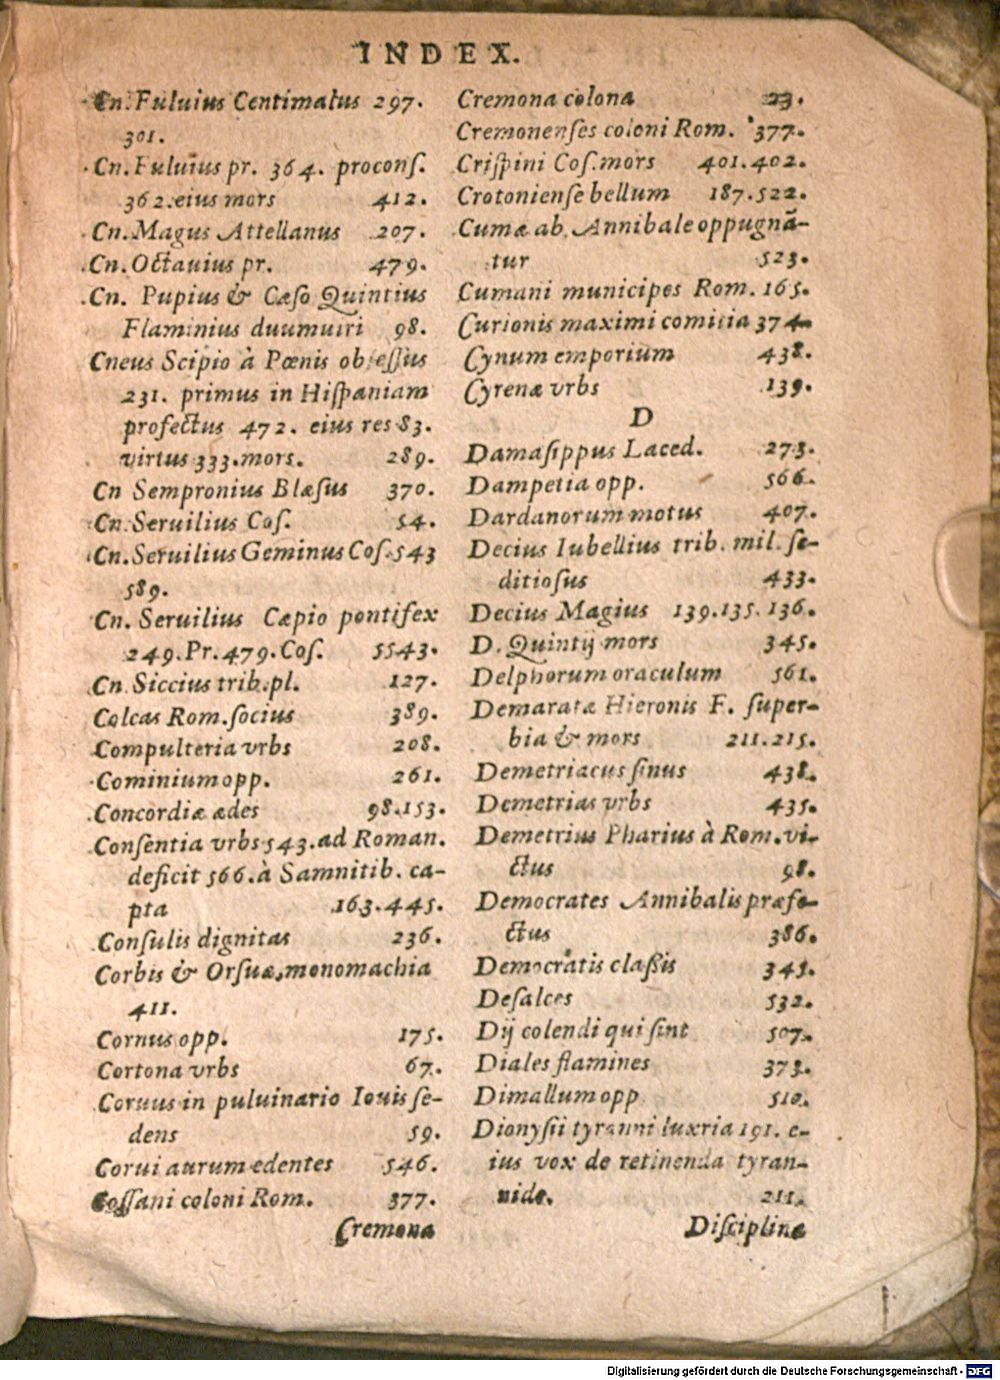 INDEX.
Cn. Fuluius Centimalus 297.
301.
Cn. Fuluius pr. 364. proconſ.
362. eius mors 412.
Cn. Magus Attellanus 207.
Cn. Octauius pr. 479.
Cn. Pupius & Cæſo Quintius
Flaminius duumuiri 98.
Cneus Scipio à Pœnis obſeſſus
231. primus in Hiſpaniam
profectus 472. eius res 83.
virtus 333. mors. 289.
Cn Sempronius Blæſus 370.
Cn. Seruilius Coſ. 54.
Cn. Seruilius Geminus Coſ. 543
589.
Cn. Seruilius Cæpio pontifex
249. Pr. 479. Coſ. 5543.
Cn. Siccius trib. pl. 127.
Colcas Rom. ſocius 389.
Compulteria vrbs 208.
Cominium opp. 261.
Concordiæ ædes 98.153.
Conſentia vrbs 543. ad Roman.
deficit 566. à Samnitib. ca-
pta 163.445.
Conſulis dignitas 236.
Corbis & Orſuæ monomachia
411.
Cornus opp. 175.
Cortona vrbs 67.
Coruus in puluinario Iouis ſe-
dens 59.
Corui aurum edentes 546.
Coſſani coloni Rom. 377.
Cremona
Cremona colona 23.
Cremonenſes coloni Rom. 377.
Criſpini Coſ. mors 401.402.
Crotonienſe bellum 187.522.
Cumæ ab Annibale oppugnā-
tur 523.
Cumani municipes Rom. 165.
Curionis maximi comitia 374.
Cynum emporium 438.
Cyrenæ vrbs 139.
D
Damaſippus Laced. 273.
Dampetia opp. 566.
Dardanorum motus 407.
Decius Iubellius trib. mil. ſe-
ditioſus 433.
Decius Magius 139.135.136.
D. Quintij mors 345.
Delphorum oraculum 561.
Demaratæ Hieronis F. ſuper-
bia & mors 211.215.
Demetriacus ſinus 438.
Demetrias vrbs 435.
Demetrius Pharius à Rom. vi-
ctus 98.
Democrates Annibalis præfe-
ctus 386.
Democratis claſſis 345.
Deſalces 532.
Dij colendi qui ſint 507.
Diales flamines 373.
Dimallum opp 510.
Dionyſii tyranni luxria 191. e-
ius vox de retinenda tyran-
nide. 211.
Diſciplina
Digitalisierung gefördert durch die Deutsche Forschungsgemeinschaft - DFG